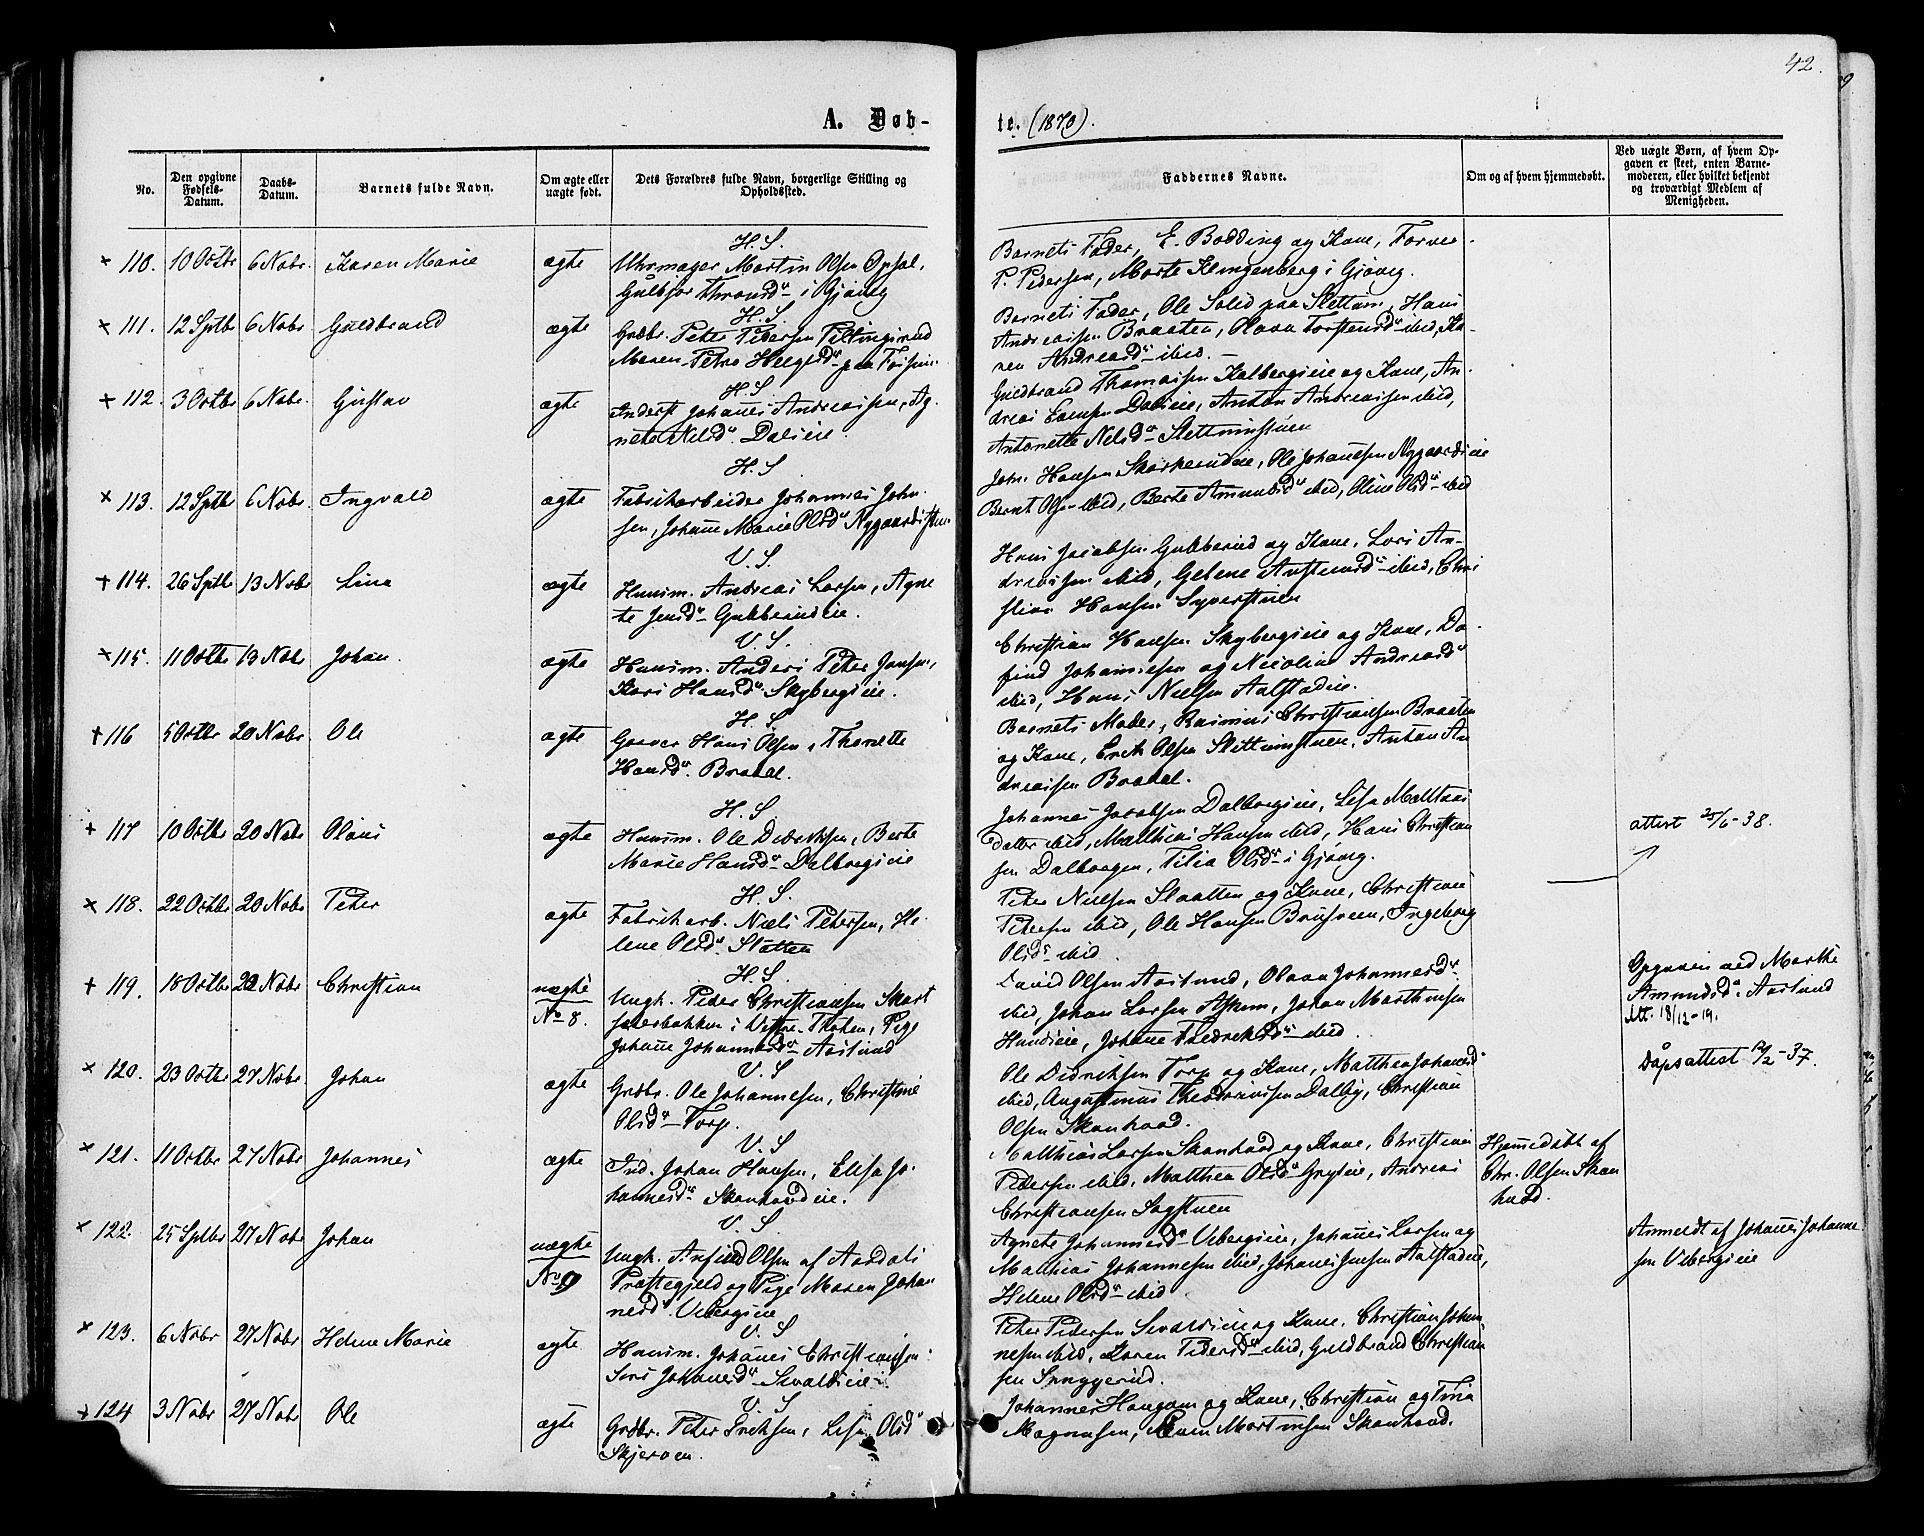 42.
A. Døb-
te. (1870).
No.
Den opgivne Fødsels-Datum.
Daabs-Datum.
Barnets fulde Navn.
Om ægte eller uægte født.
Dets Forældres fulde Navn, borgerlige Stilling og Opholdssted.
Faddernes Navne.
Om og af hvem hjemmedøbt.
Ved uægte Børn, af hvem Opgaven er skeet, enten Barnemoderen, eller hvilket bekjendt og troværdigt Medlem af Menigheden.
H. S.
110. 10 Octbr 6 Nobr. Karen Marie ægte Uhrmager Martin Olsen Opsal,
Gulbjør Thronsdr i Gjøvig
Barnets Fader, E. Bodding og Kone, Forver
P. Pedersen, Marte Klingenberg i Gjøvig.
H. S
111. 12 Sptbr 6 Nobr. Guldbrand ægte Grdbr. Peter Pedersen
Maren Petra Helgesdr paa
Barnets Fader, Ole Solid paa Slettum, Hans
Andreassen Braaten, Olava Torstensdr ibid, Ka-
ren Andreasdr ibid.
H. S
112. 3 Octbr 6 Nobr. Gustav ægte Inderst Johanes Andreassen, Ag-
nete Nilsdr. Dalseie.
Guldbrand Thomassen Kalbergseie og Kone, An-
dreas Dalseie, Anton Andreassen ibid,
Antonette Nilsdr Slettumstuen
H. S
113. 12 Sptbr 6 Nobr. Ingvald ægte Fabrikarbeider Johannes John-
sen, Johanne Marie Olsdr
John Hansen Skarkerudeie, Ole Johansen Nygaardseie
Bernt Olsen ibid, Berte Amundsdr ibid, Oline Olsdr ibid
V. S.
114. 26 Sptbr 13 Nobr Lina ægte Husm. Andreas Larsen, Agne
te Jensdr Gubberudeie.
Hans Jacobsen Gubberud og Kone, Lars An-
dreassen ibid, Gelene ibid, Chri
stian Hansen Syverstuen
V. S.
115. 11 Octbr 13 Nobr Johan. ægte Husm. Anders Peter Jansen,
Kari Hansdr Skybergseie.
Christian Hansen Skybergseie og Kone, Da-
find Johannesen og Nicoline Andreasdr
ibid, Hans Nielsen Aalstadeie.
H. S
116 5 Octbr 20 Nobr. Ole ægte Garver Hans Olsen, Thonette
Hansdr. Bradal.
Barnets Moder, Rasmus Christiansen Braaten
og Kone, Erik Olsen Slettumstuen, Anton An
dreassen Bradal.
H. S
117 10 Octbr 20 Nobr Olaus ægte Husm. Ole Didriksen, Berte
Marie Hansdr Dalborgseie
Johannes Jacobsen Dalborgseie, Lisa Mathias
datter ibid, Matthias Hansen ibid, Hans Christian
sen Dalborgen, Tilia Olsdr i Gjøvig.
attest 25/6-38.
H. S.
118. 22 Octbr 20 Nobr Peter ægte Fabrikarb. Niels Petersen, He-
lene Olsdr Slåtten
Peter Nielsen Slaatten og Kone, Christian
Petersen ibid, Ole Hansen Brusveen, Ingeborg
Olsdr ibid
H. S.
119. 18 Octbr 20 Nobr Christian uægte Ungk. Peder Christiansen
No 8. i Vestre Thoten, Pige
Johanne Johannesdr Aaslund
David Olsen Aaslund, Olava Johannesdr
ibid, Johan Larsen Askum, Johan Marthinsen
Hundseie, Johanne Fredriksdr ibid
Opgaven ved Marthe
Amundsdr Aaslund
Att. 18/12-19.
V. S
120. 23 Octbr 27 Nobr Johan ægte Grdbr. Ole Johannesen, Christine
Olsdr Torp.
Ole Didriksen Torp og Kone, Matthea Johansdr
ibid, Augustinus Theodorussen Dalby, Christian
Olsen Skonhovd.
Dåpsattest /2-37.
V. S
121. 11 Octbr 27 Nobr Johannes ægte Ind. Johan Hansen, Elisa Jo-
hannesdr Skonhovdeie.
Matthias Larsen Skonhovd og Kone, Christian
Pedersen ibid, Matthea Olsdr Gryteie, Andreas
Christiansen Sagstuen
Hjemmedøbt af
Chr. Olsen Skon
hovd.
V. S
122. 25 Sptbr 27 Nobr Johan uægte Ungk. Arfind Olsen af Aardals
No 9 Præstegjeld og Pige Maren Johan
nesdr. Vebergseie
Agnete Johannesdr Vebergseie, Johanes Larsen og
Mathias Johannesen ibid, Johanes Jensen Aalstadeie,
Helene Olsdr ibid
Anmeldt af Johanes Johanne
sen Vebergseie
V. S
123. 6 Nobr 27 Nobr Helene Marie ægte Husm. Johanes Christiansen
Siri Johansdr Sivaldseie
Peter Pedersen Sivaldseie og Kone, Christian Johan-
nesen ibid, Karen Pedersdr ibid, Guldbrand Christian
sen Snuggerud.
V. S
124 3 Nobr 27 Nobr Ole ægte Grdbr. Peter Eriksen, Lisa Olsdr
Skjerven.
Johannes Haugom og Kone, Christian og Tina
Magnusen, Even Martinsen Skonhovd.